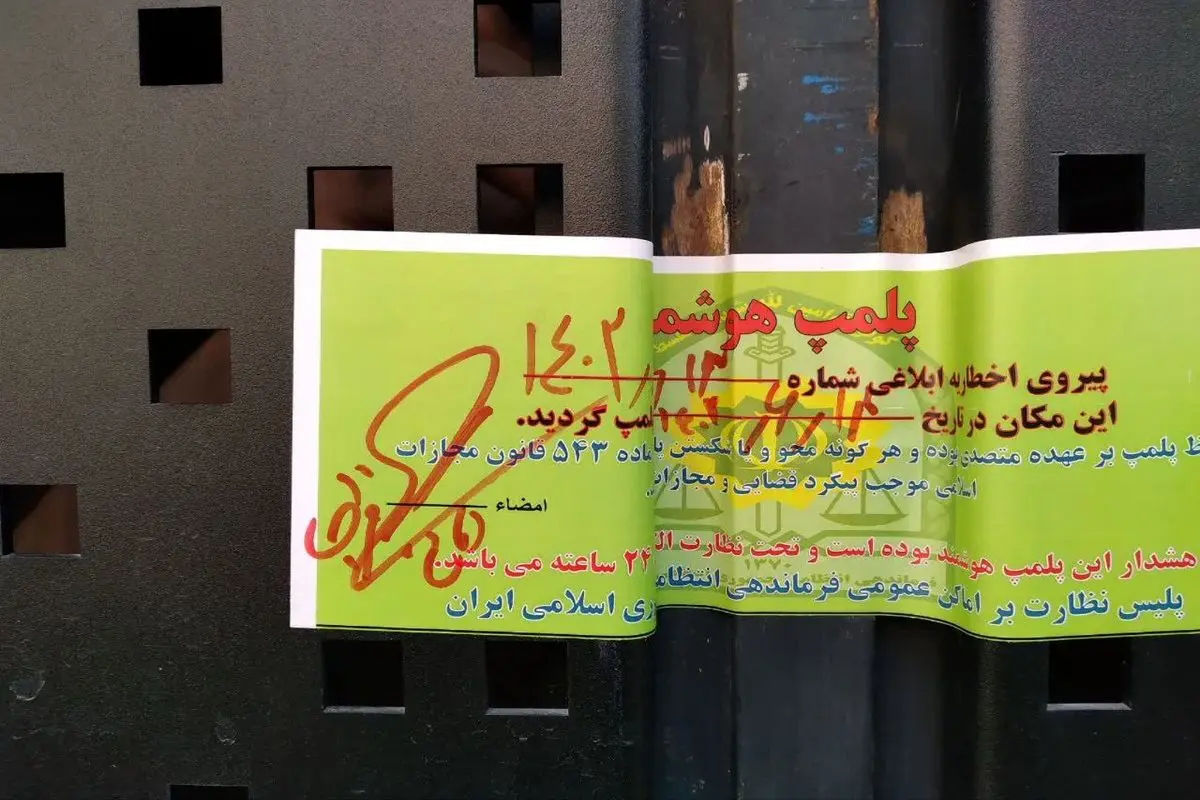 پلمپ هوشم
پیروی اخطاریه ابلاغی شماره ۱۴۰۲
این مکان در تاریخ لمپ گردید.
ظ پلمپ بر عهده متصدی بوده و هر گونه محو و یا شکستن پل ماده ۵۴۳ قانون مجازات
اسلامی موجب پیگرد قضایی و مجازات
امضاء
هشدار این پلمپ هوشمند بوده است و تحت نظارت الک ۲۴ ساعته می باشد.
پلیس نظارت بر اماکن عمومی فرماندهی انتظامی ری اسلامی ایران
۱۳۷۰